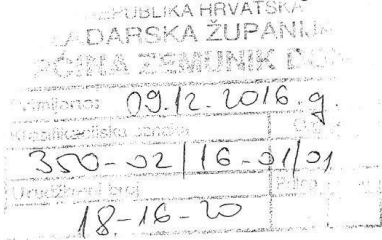 REPUBLIKA HRVATSKA
ZADARSKA ŽUPANIJA
OPĆINA ZEMUNIK DONJI
Primljeno: 09.12.2016.g.
Klasifikacijska oznaka
350-02/16-01/01
Urudžbeni broj
18-16-20